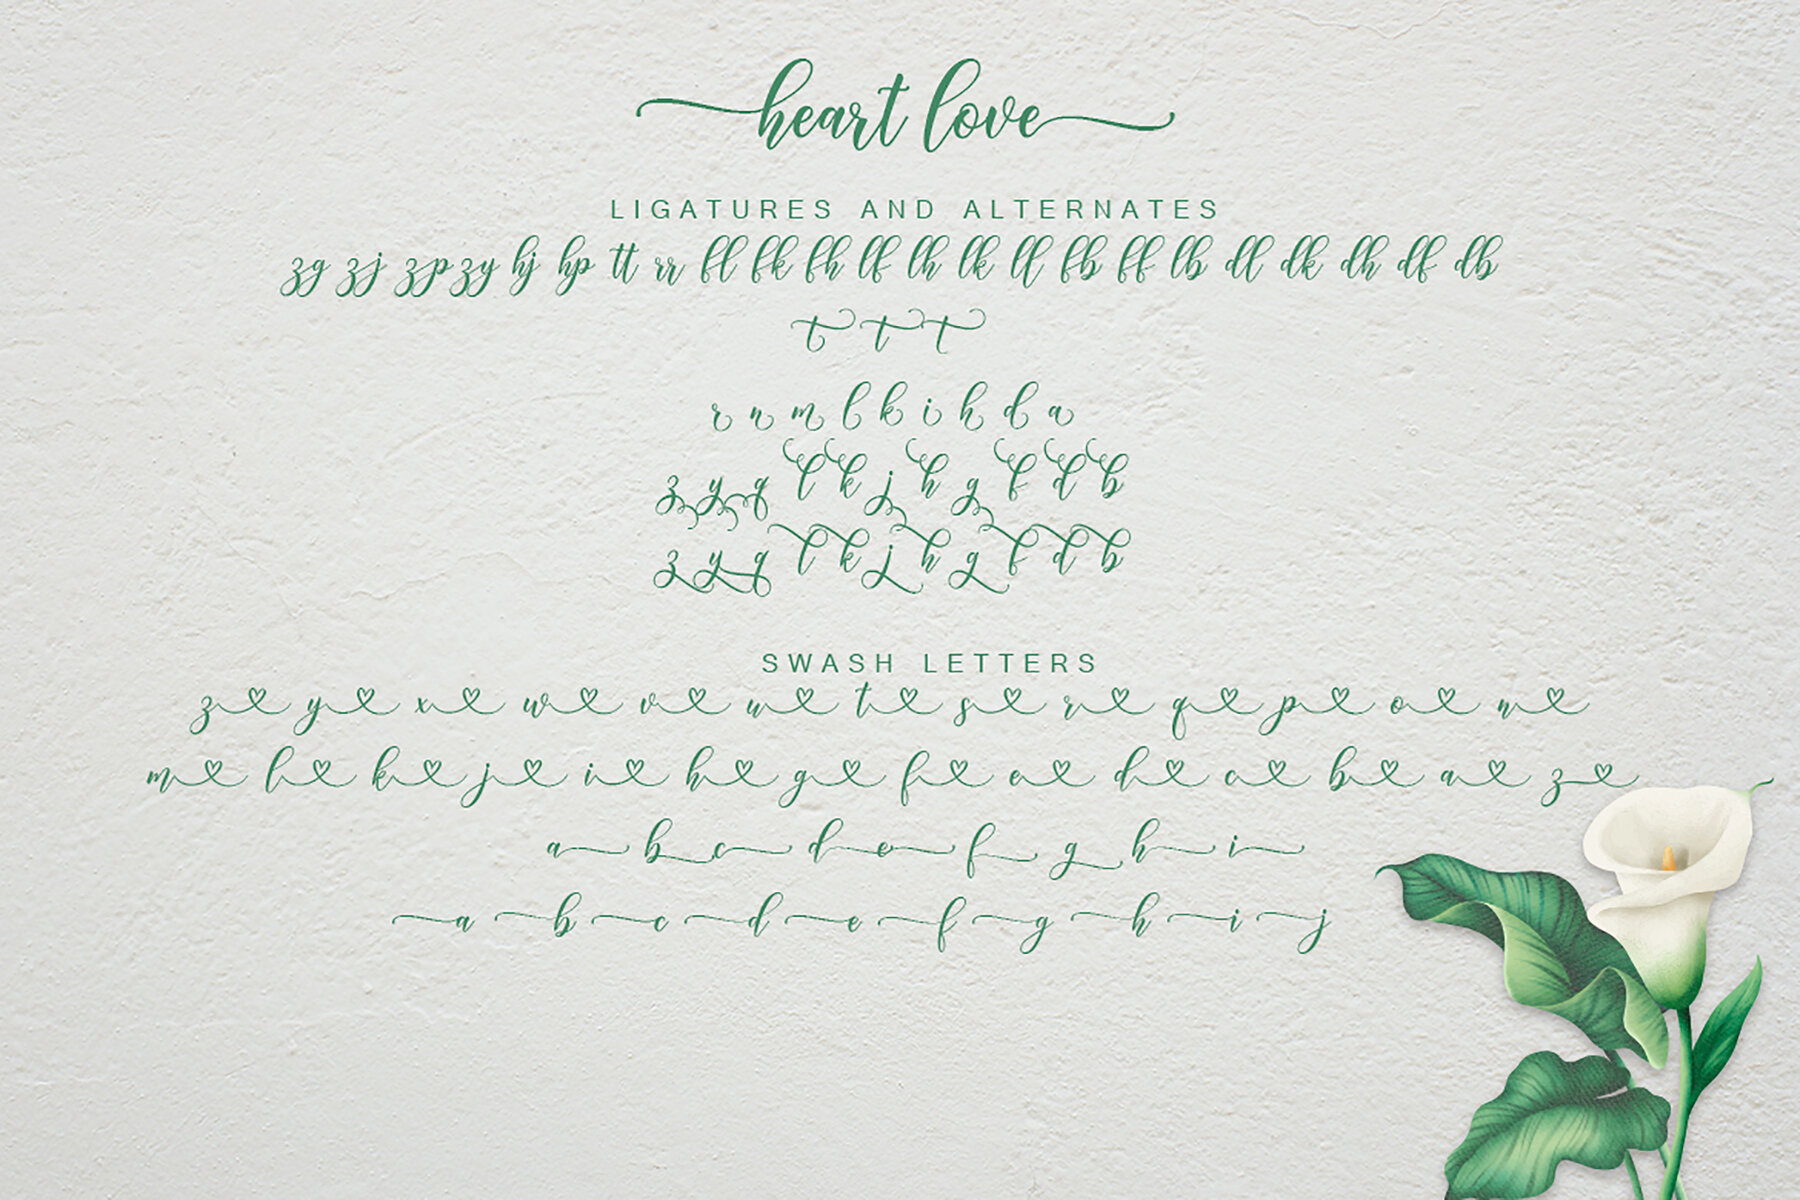 heart love
LIGATURES AND ALTERNATES
zg zj zp zy hj hp tt rr fl fk fh lf lh lk ll fb ff lb dl dk dh df db
t t t
r n m l k i h d a
z y q l k j h g f d b
z y q l k j h g f d b
SWASH LETTERS
z y x w v u t s r q p o n
m l k j i h g f e d c b a z
a b c d e f g h i
a b c d e f g h i j